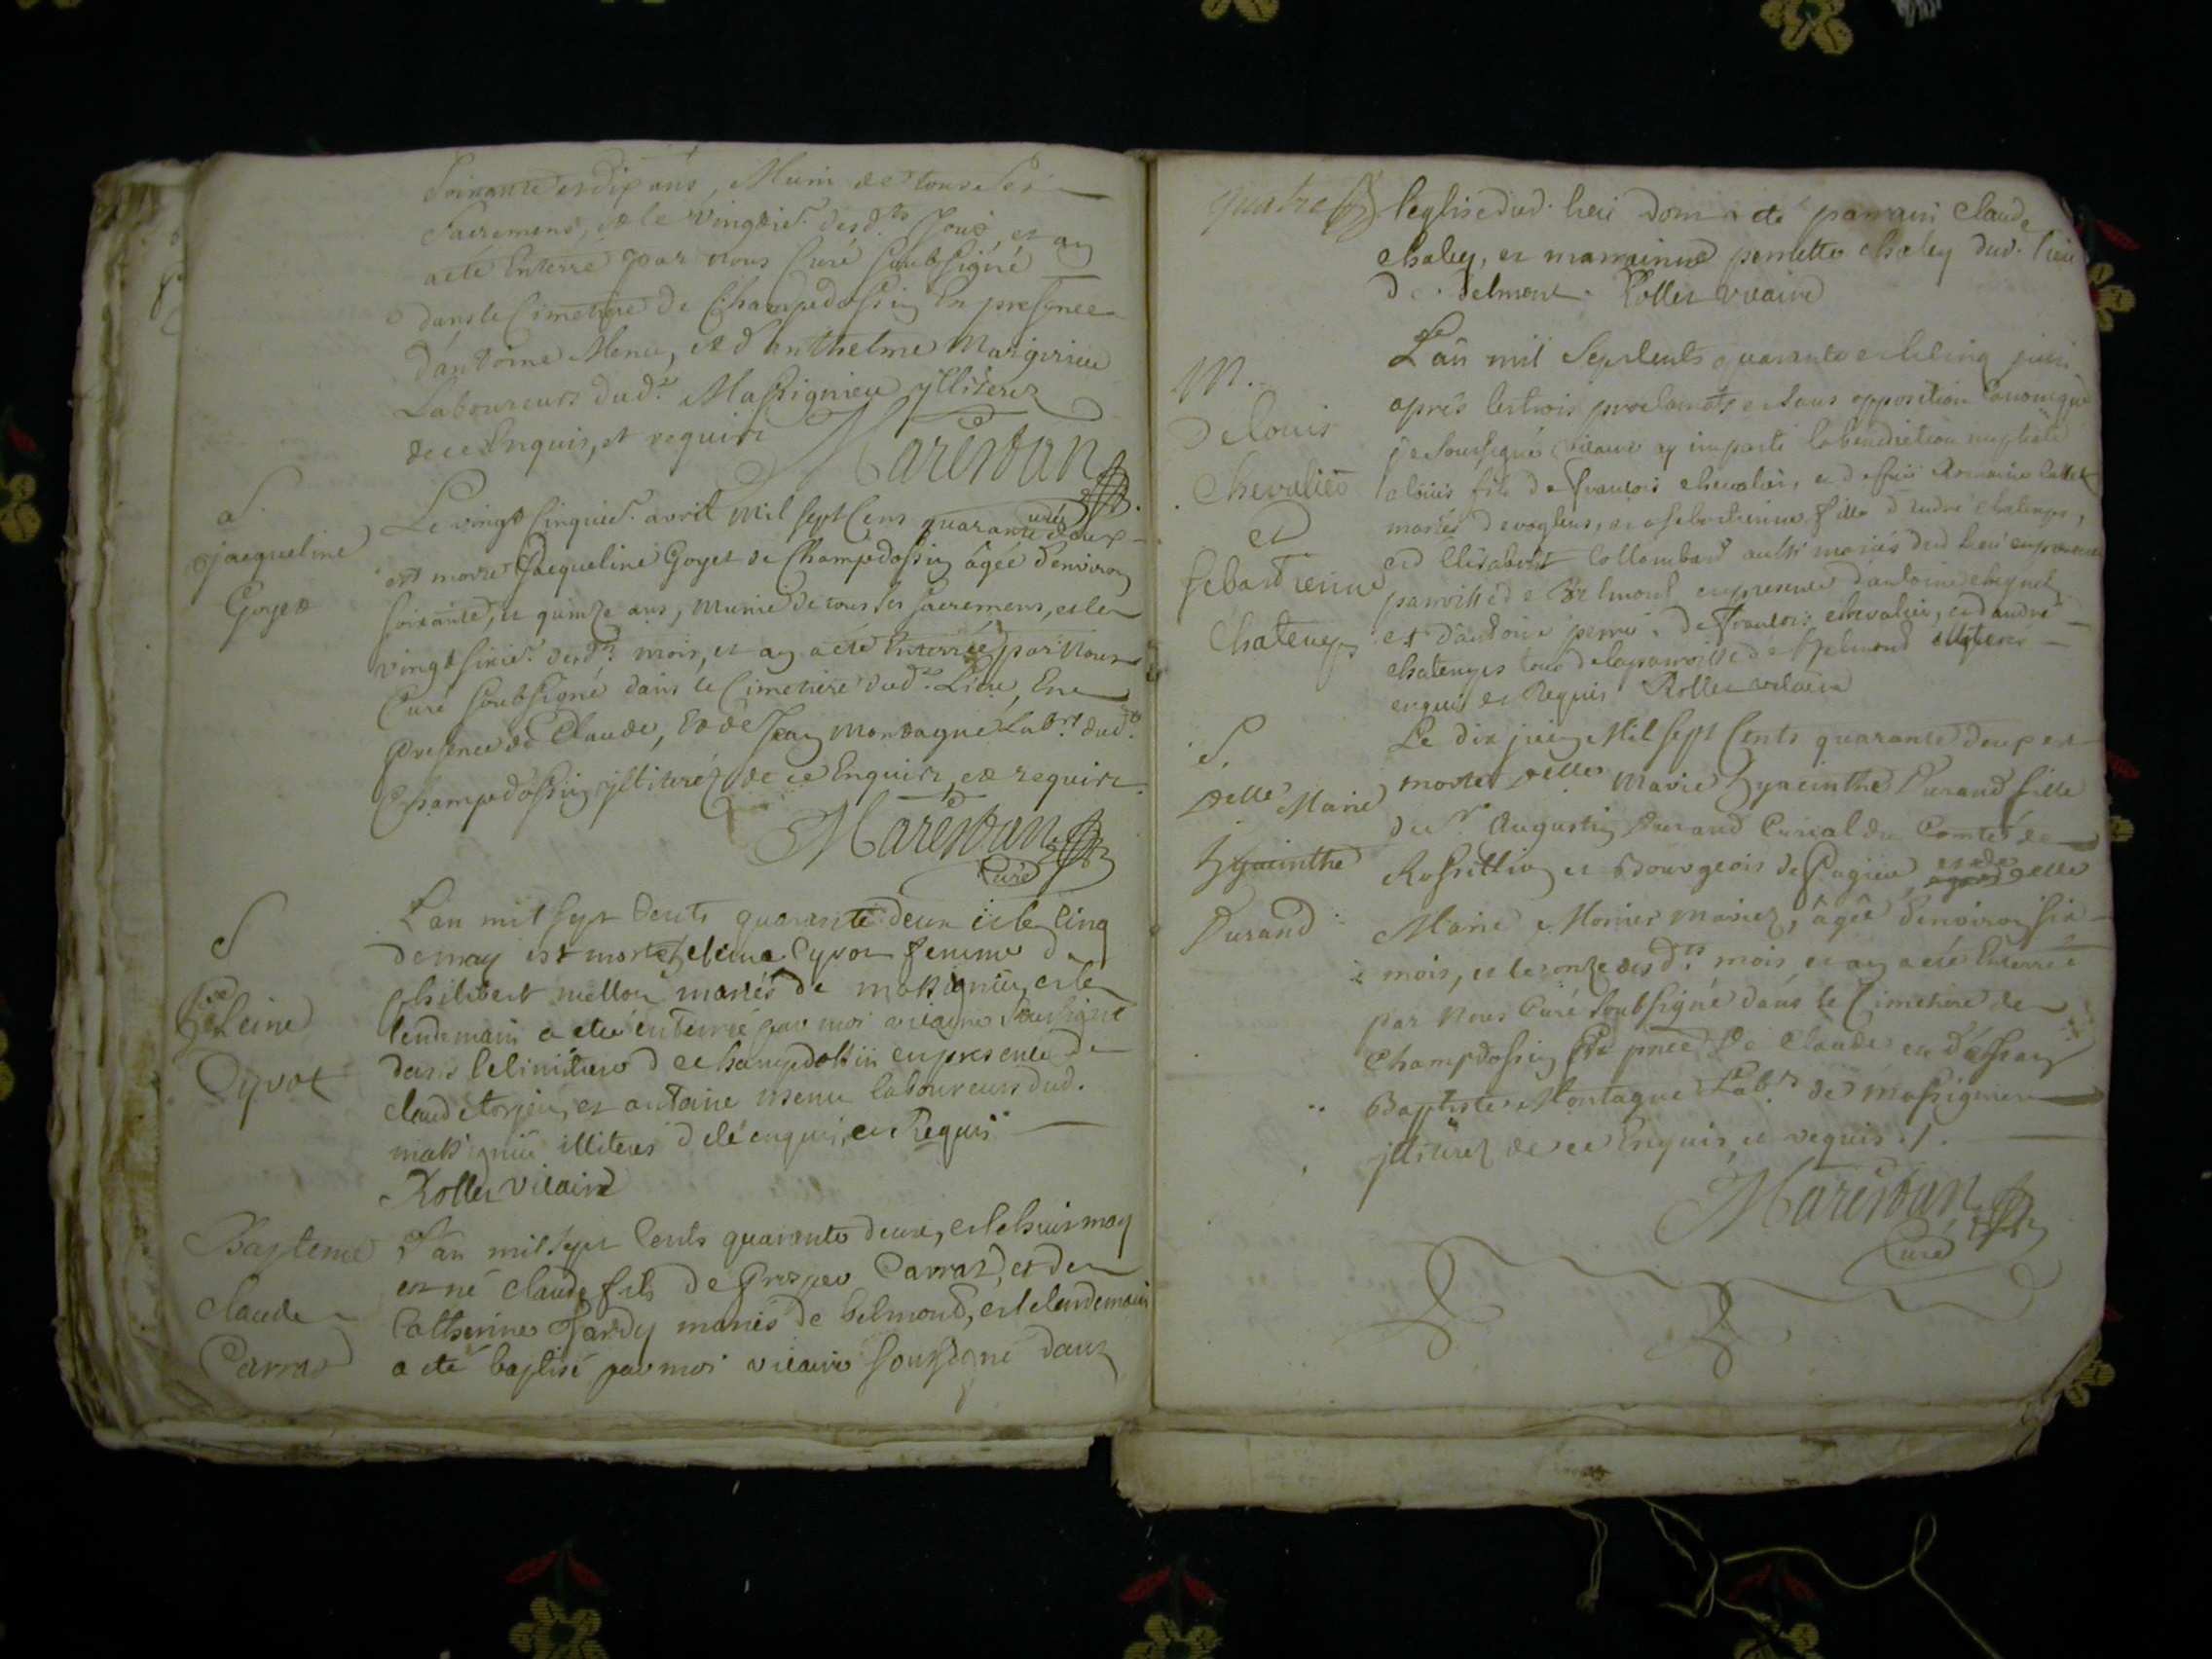 Soixante et dix ans, Muni de tous ses
Sacremens, et le vingtie. desd.ts Jour, et an
a été Enterré par nous Curé Soubsigné
dans le Cimetiere de Champdossin En presence
d'antoine Menu, et d'anthelme Marginieu
Laboureurs dud.t Massignieu jlliterez
de ce Enquis, et requis
Marestan
curé
S.
jacqueline
Goyet
Le vingt Cinquie. avril Mil sept Cens quarante deux
est morte Jacqueline Goyet de Champdossin âgée d'environ
soixante, et quinze ans, Munie de tous ses sacremens, et le
vingt sixie. desd.ts mois, et an a été Enterrée par Nous
Curé Soubsigné dans le Cimetiere dud.t Lieu, En
Presence de Claude, et de Jean Montagne Lab.rs dud.t
Champdossin jlliterez de ce Enquis, et requis
Marestan
Curé
S
heleine
Cyvot
L'an mil sept Cents quarante deux et le Cinq
de may est morte heleine Cyvot femme de
philibert mellon mariés de massignieu, et le
lendemain a été enterrée par moi vicaire soussigné
dans le Cimitiere de champdossin en presence de
claude et antoine menu laboureurs dud.
massignieu illiteres de ce enquis, et Requis
Rollet vicaire
Bapteme
claude
Carraz
L'an mil sept Cents quarante deux, et le huit may
est né claude fils de Prosper Carraz, et de
Catherine Tardy mariés de belmont, et le lendemain
a été baptisé par moi vicaire soussigné dans
quatre
l'eglise dud. lieu dont a été parrain claude
chaley, et marrainne perrette chaley dud. lieu
de belmont. Rollet vicaire
M.
De louis
Chevalier
et
sebastienne
Chatenges
L'an mil sept Cents quarante et le cinq juin
après les trois proclamats et sans opposition Canonique
je soussigné vicaire ay imparti la benediction nuptiale
a louis fils de françois chevalier, et de Romaine
mariés de voglens, et a sebastienne fille d'andré chatenges,
et d'Elisabeth Collombard aussi mariés dud lieu
parroisse de Belmont en presence d'antoine
et d'antoine perret, de françois chevalier, et d'andré
chatenges tous de la parroisse de Belmont illiteres
enquis et Requis Rollet vicaire
S.
Delle Marie
hyacinthe
Durand
Le dix juin Mil sept Cents quarante deux est
morte Delle Marie hyacinthe Durand fille
du Sr. Augustin Durand Curial du Comté de
Rossillion et Bourgeois de Pugieu, et de Delle
Marie Monier Mariez, âgée d'environ six
mois, et le onze desd.ts mois, et an a été Enterrée
par Nous Curé soubsigné dans le Cimetiere de
Champdossin En pnce de Claude et de Jean
Baptiste Montagne Lab.rs de Massignieu
jlliterez de ce Enquis, et requis ./.
Marestan
Curé